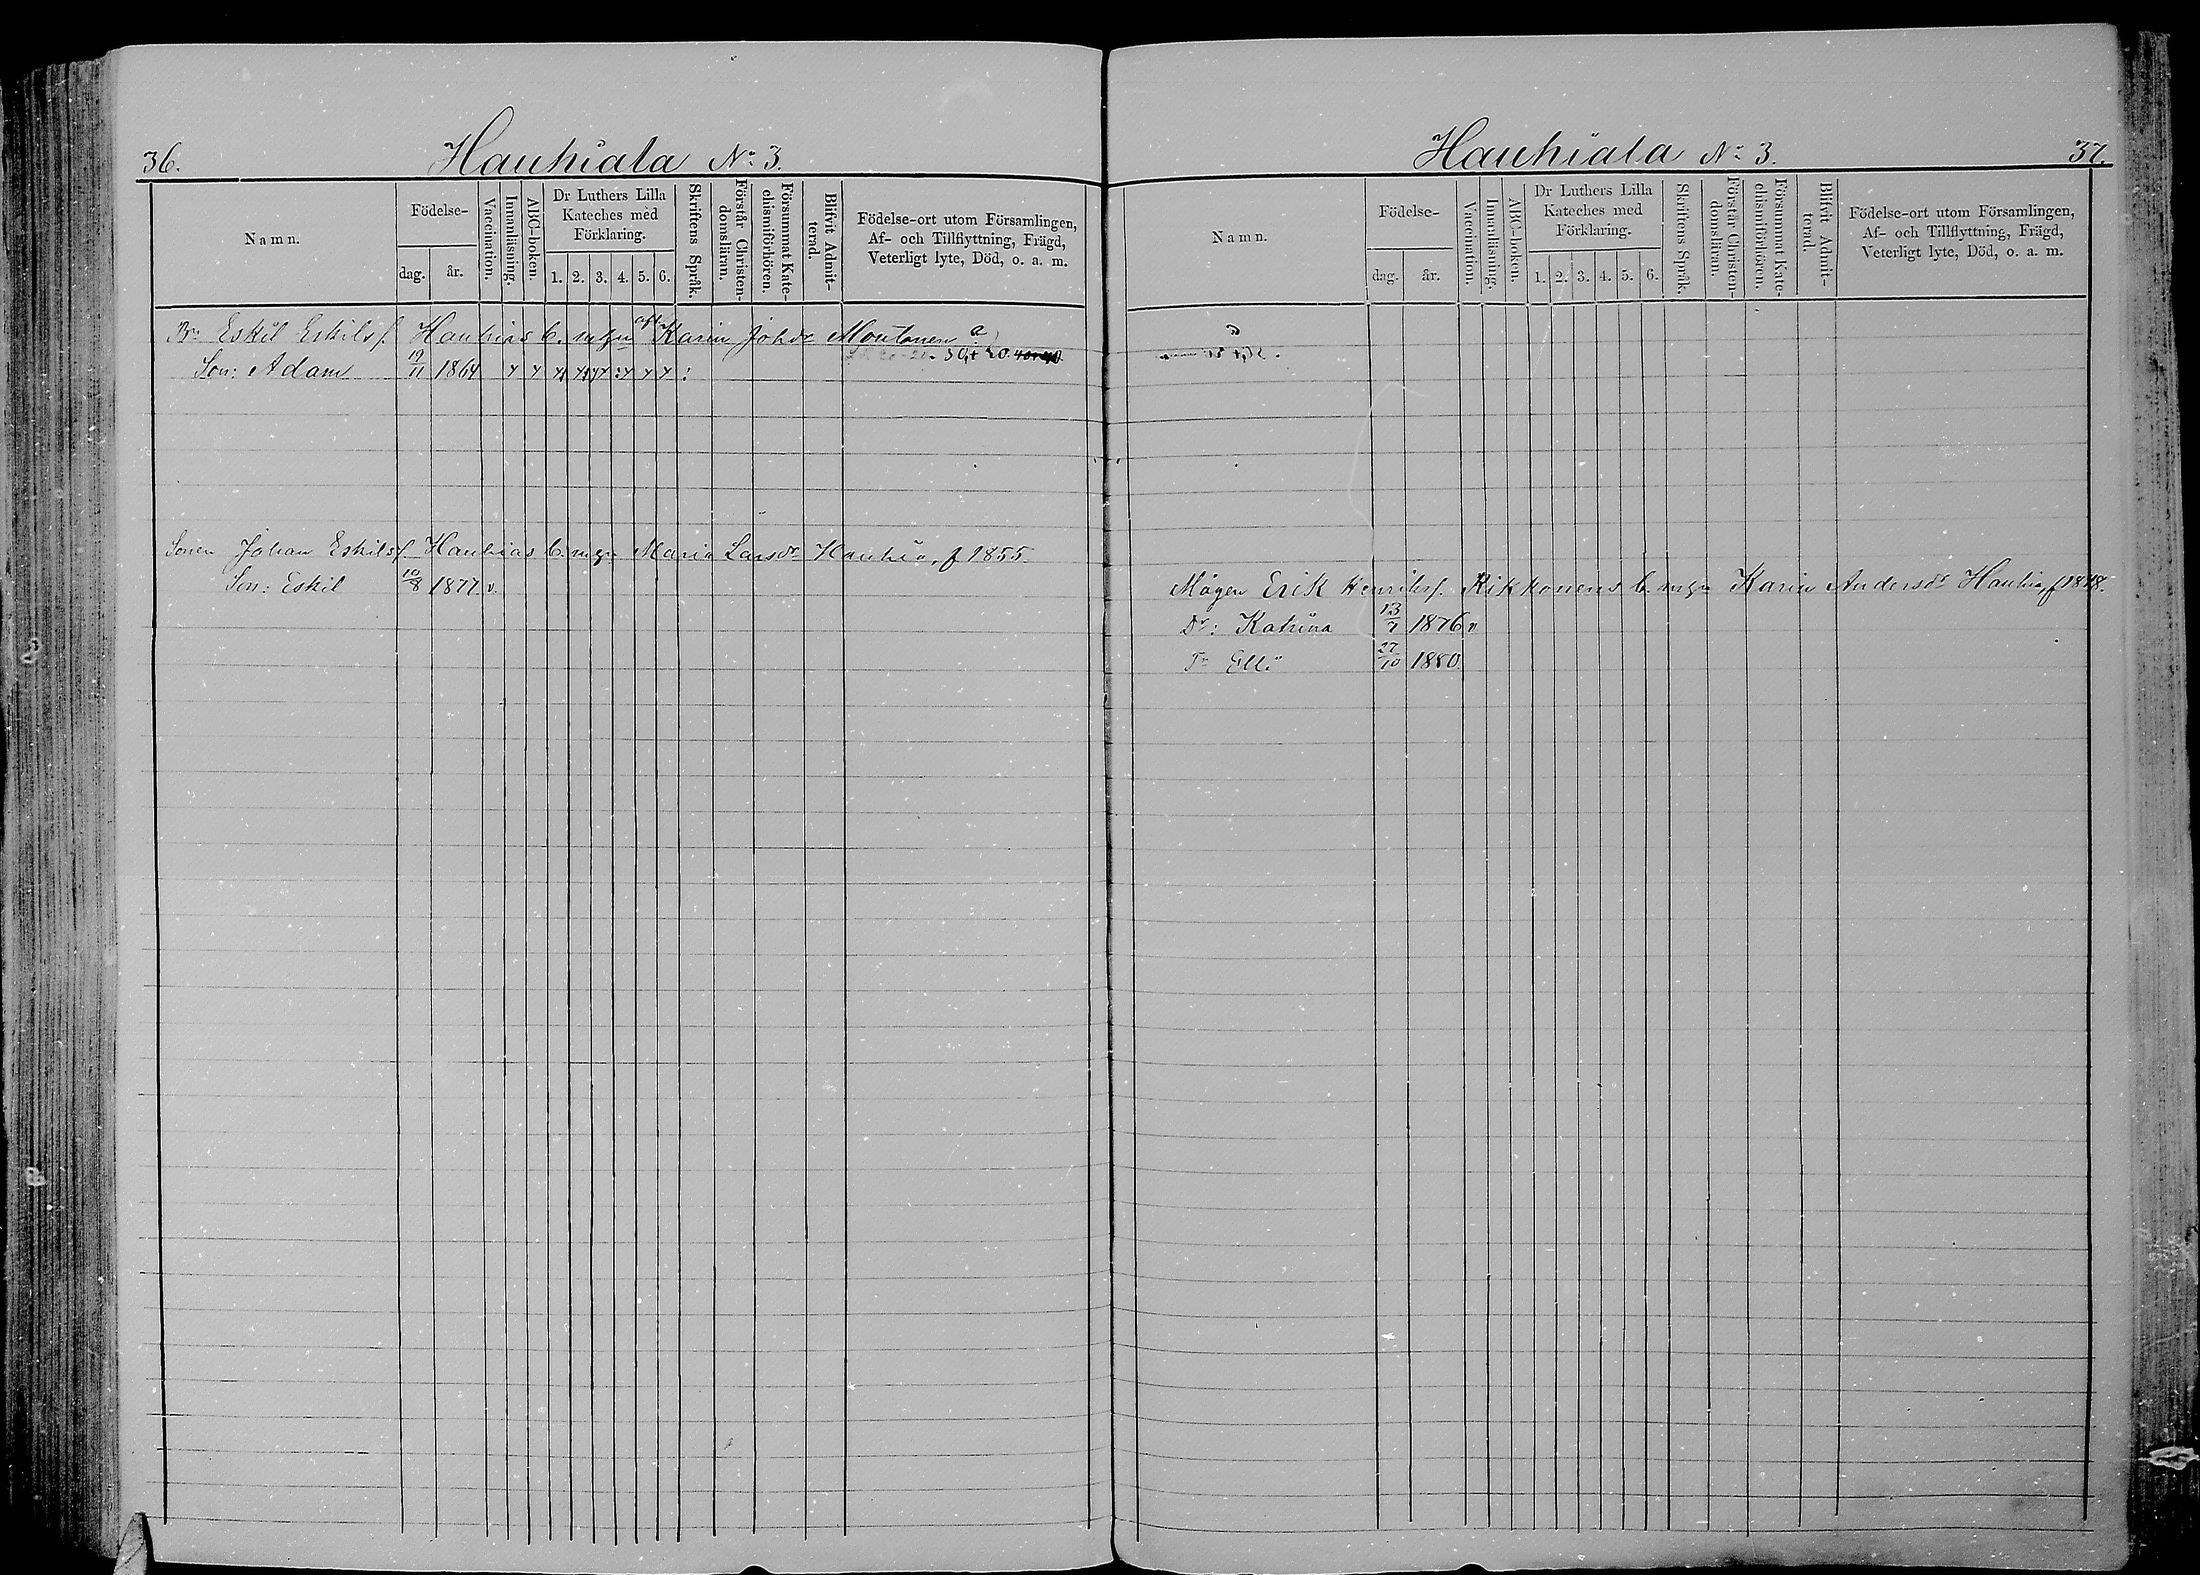 36.
Hauhiala No 3.
Namn.
Födelse-
dag.
år.
Vaccination.
Innanläsning.
ABC-boken.
Dr Luthers Lilla
Kateches med
Förklaring.
1. 2. 3. 4. 5. 6.
Skriftens Språk.
Förstår Christen-
domsläran.
Försummat Kate-
chismiförhören.
Blifvit Admit-
terad.
Födelse-ort utom Församlingen,
Af- och Tillflyttning, Frägd,
Veterligt lyte, Död, o. a. m.
Br Eskil Eskilsf. Hauhias b. m. Karin Johdr Moutonen
Son: Adam 19/11 1864
Sonen Johan Eskilsf. Hauhias b. mgn Maria Larsdr Hauhia, f 1855.
Son: Eskil 10/8 1877 v.
Hauhiala No 3.
37.
Namn.
Födelse-
dag.
år.
Vaccination.
Innanläsning.
ABC-boken.
Dr Luthers Lilla
Kateches med
Förklaring.
1. 2. 3. 4. 5. 6.
Skriftens Språk.
Förstår Christen-
domsläran.
Försummat Kate-
chismiförhören.
Blifvit Admit-
terad.
Födelse-ort utom Församlingen,
Af- och Tillflyttning, Frägd,
Veterligt lyte, Död, o. a. m.
Mågen Erik Henriksf. Rikkonens b. mgn Karin Andersdr Hauhia, f 1848.
Dr: Katrina 13/7 1876 v
Dr Elli 27/10 1880.